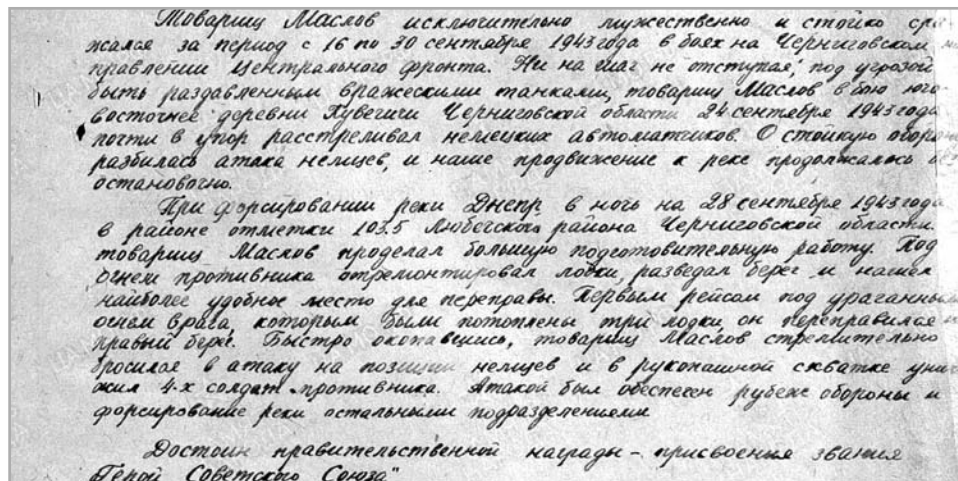 Товарищ Маслов исключительно мужественно и стойко сра-
жался за период с 16 по 30 сентября 1943 года в боях на Черниговском
правлении Центрального фронта. Ни на шаг не отступая, под угрозой
быть раздавленным вражескими танками, товарищ Маслов в бою юго-
восточнее деревни Пувегичи Черниговской области 24 сентября 1943 года
почти в упор расстреливал немецких автоматчиков. О стойкую оборону
разбилась атака немцев, и наше продвижение к реке продолжалось
остановочно.
При форсировании реки Днепр в ночь на 28 сентября 1943 года
в районе отметки 103.5 Любечского района Черниговской области
товарищ Маслов проделал большую подготовительную работу. Под
огнем противника отремонтировал лодки, разведал берег и нашел
наиболее удобное место для переправы. Первым рейсом под ураганным
огнем врага, которым были потоплены три лодки, он переправился
правый берег. Быстро окопавшись, товарищ Маслов стремительно
бросился в атаку на позиции немцев и в рукопашной схватке уни-
жил 4-х солдат противника. Атакой был обеспечен рубеж обороны и
форсирование реки остальными подразделениями
Достоин правительственной награды - присвоения звания
"Герой Советского Союза"